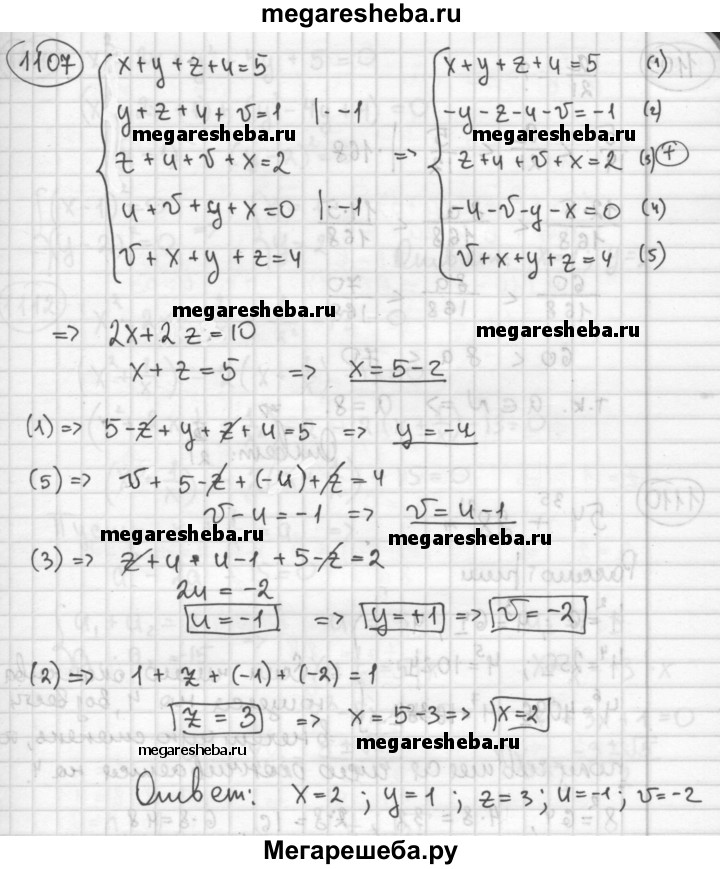 megaresheba.ru
1107
x+y+z+u=5
y+z+u+v=1 |·-1
z+u+v+x=2
u+v+y+x=0 |·-1
v+x+y+z=4
=>
x+y+z+u=5 (1)
-y-z-u-v=-1 (2)
z+u+v+x=2 (3) +
-u-v-y-x=0 (4)
v+x+y+z=4 (5)
megaresheba.ru
megaresheba.ru
megaresheba.ru
megaresheba.ru
=> 2x+2z=10
x+z=5 => x=5-z
(1)=> 5-z+y+z+u=5 => y=-u
(5)=> v+5-z+(-u)+z=4
v-u=-1 => v=u-1
megaresheba.ru
megaresheba.ru
(3)=> z+u+u-1+5-z=2
2u=-2
u=-1 => y=+1 => v=-2
(2)=> 1+z+(-1)+(-2)=1
z=3 => x=5-3=> x=2
megaresheba.ru
megaresheba.ru
Ответ: x=2; y=1; z=3; u=-1; v=-2
Мегарешеба.ру